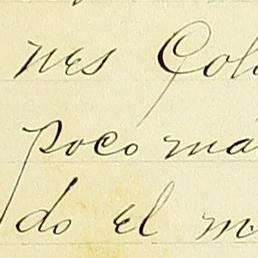 nes Col
poco má
do el m